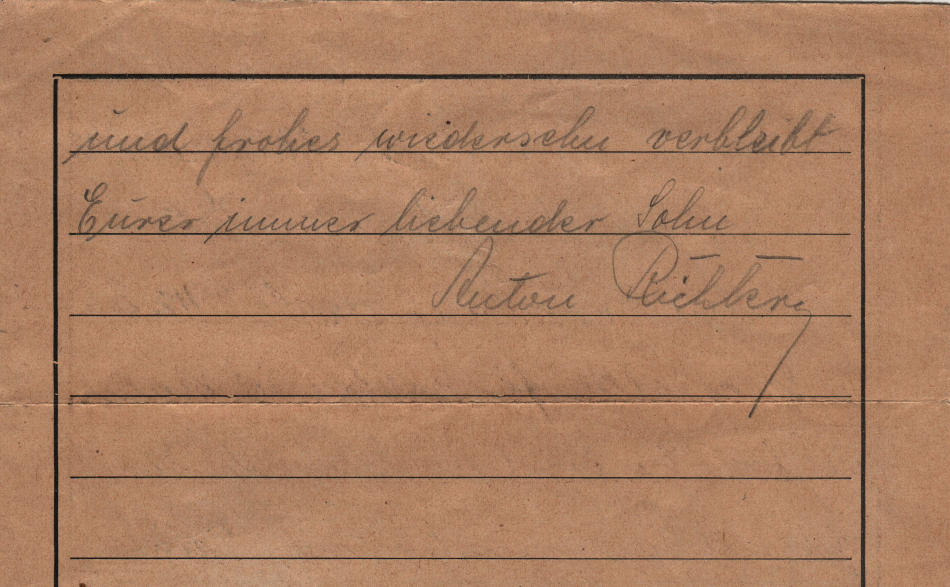 und frohes wiedersehn verbleibt
Eurer immer liebender Sohn
Anton Richter